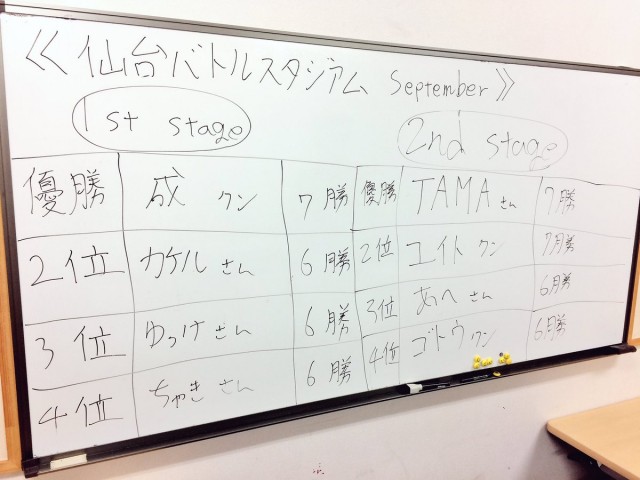 ≪仙台バトルスタジアム September≫
1st stage
優勝 成 クン 7勝
2位 カケル さん 6勝
3位 ゆっけ さん 6勝
4位 ちゃき さん 6勝
2nd stage
優勝 TAMA さん 7勝
2位 ユイト クン 7勝
3位 さん 6勝
4位 ゴトウ クン 6勝